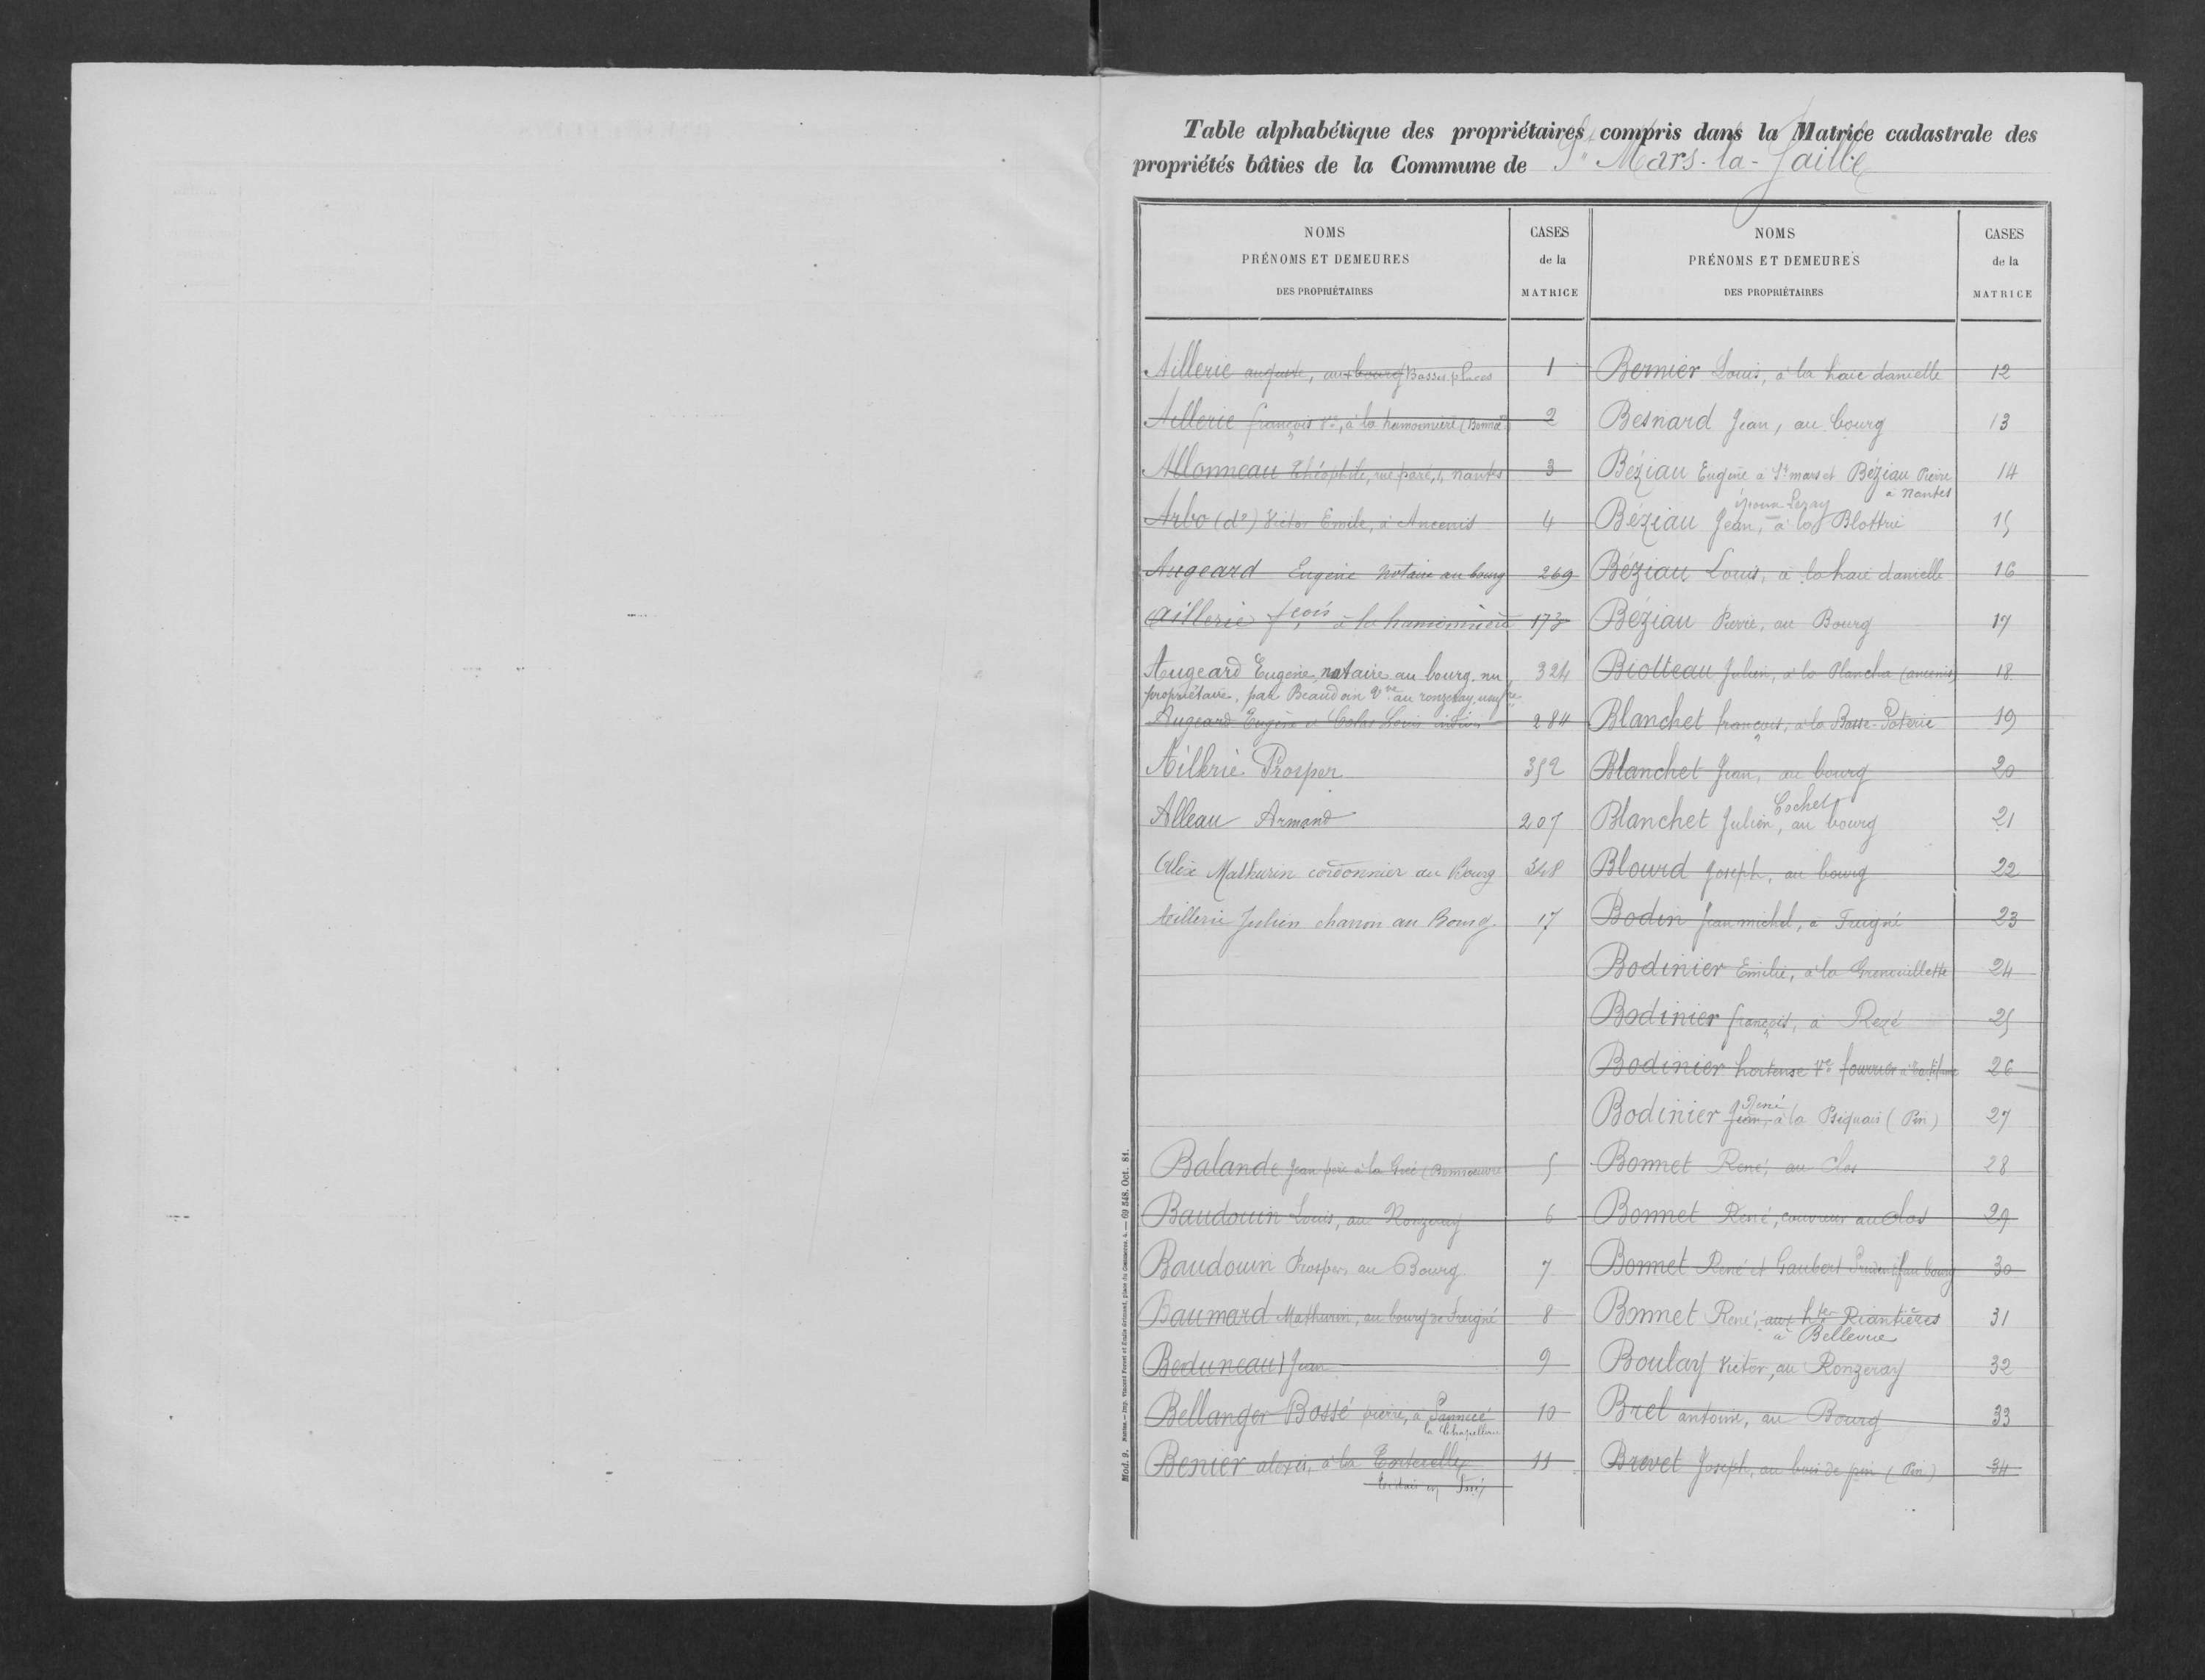 Table alphabétique des propriétaires compris dans la Matrice cadastrale des
propriétés bâties de la Commune de St Mars-la-Jaille
NOMS
PRÉNOMS ET DEMEURES
DES PROPRIÉTAIRES
CASES
de la
MATRICE
Aillerie auguste, au bourg Basses places 1
Aillerie françois Ve, à la hamonnière (Bonnœ 2
Allonneau Théophile, rue paré, 1, Nantes 3
Arbo (de) Victor Emile, à Ancenis 4
Augeard Eugène Notaire au bourg 269
Aillerie fçois à la hamonnière 173
Augeard Eugène, notaire au bourg. nu 324
propriétaire, par Beaudoin Vve au ronzeray, usuf
Augeard Eugène et Louis 284
Aillerie Prosper 352
Alleau Armand 207
Alix Mathurin cordonnier au Bourg 348
Aillerie Julien charron au Bourg. 17
Balande Jean père à la Grée (Bonnœuvre 5
Baudouin Louis, au Ronzeray 6
Baudouin Prosper, au Bourg. 7
Baumard Mathurin, au bourg de Freigné 8
Beduneau Jean 9
Bellanger Bossé pierre, à Pannecé 10
la Chapellerie
Benier alexis, à la 11
NOMS
PRÉNOMS ET DEMEURES
DES PROPRIÉTAIRES
CASES
de la
MATRICE
Bernier Louis, à la haie danielle 12
Besnard Jean, au bourg 13
Béziau Eugène à St mars et Béziau Pierre 14
à Nantes
époux Lezay
Béziau Jean, à la Blottrie 15
Béziau Louis, à la haie danielle 16
Béziau Pierre, au Bourg 17
Biotteau Julien, à la Planche (ancenis) 18
Blanchet françois, à la Basse-Poterie 19
Blanchet Jean, au bourg 20
Cochet
Blanchet Julien, au bourg 21
Blourd Joseph, au bourg 22
Bodin Jean michel, à Freigné 23
Bodinier Emilie, à la Grenouillette 24
Bodinier françois, à Rezé 25
Bodinier hortense Ve fourrier à 26
René
Bodinier Jean, à la (Pin) 27
Bonnet René, au clos 28
Bonnet René, couvreur au clos 29
Bonnet René et Gaubert au bourg 30
Bonnet René, aux htes Riantières 31
à Bellevue
Boulay Victor, au Ronzeray 32
Brel antoine, au Bourg 33
Brevet Joseph, au bois de pin (Pin) 34
Mod. 9. Nantes.— Imp. Vincent Forest et Émile Grimaud, place du Commerce, 4.— 69 548. Oct. 81.